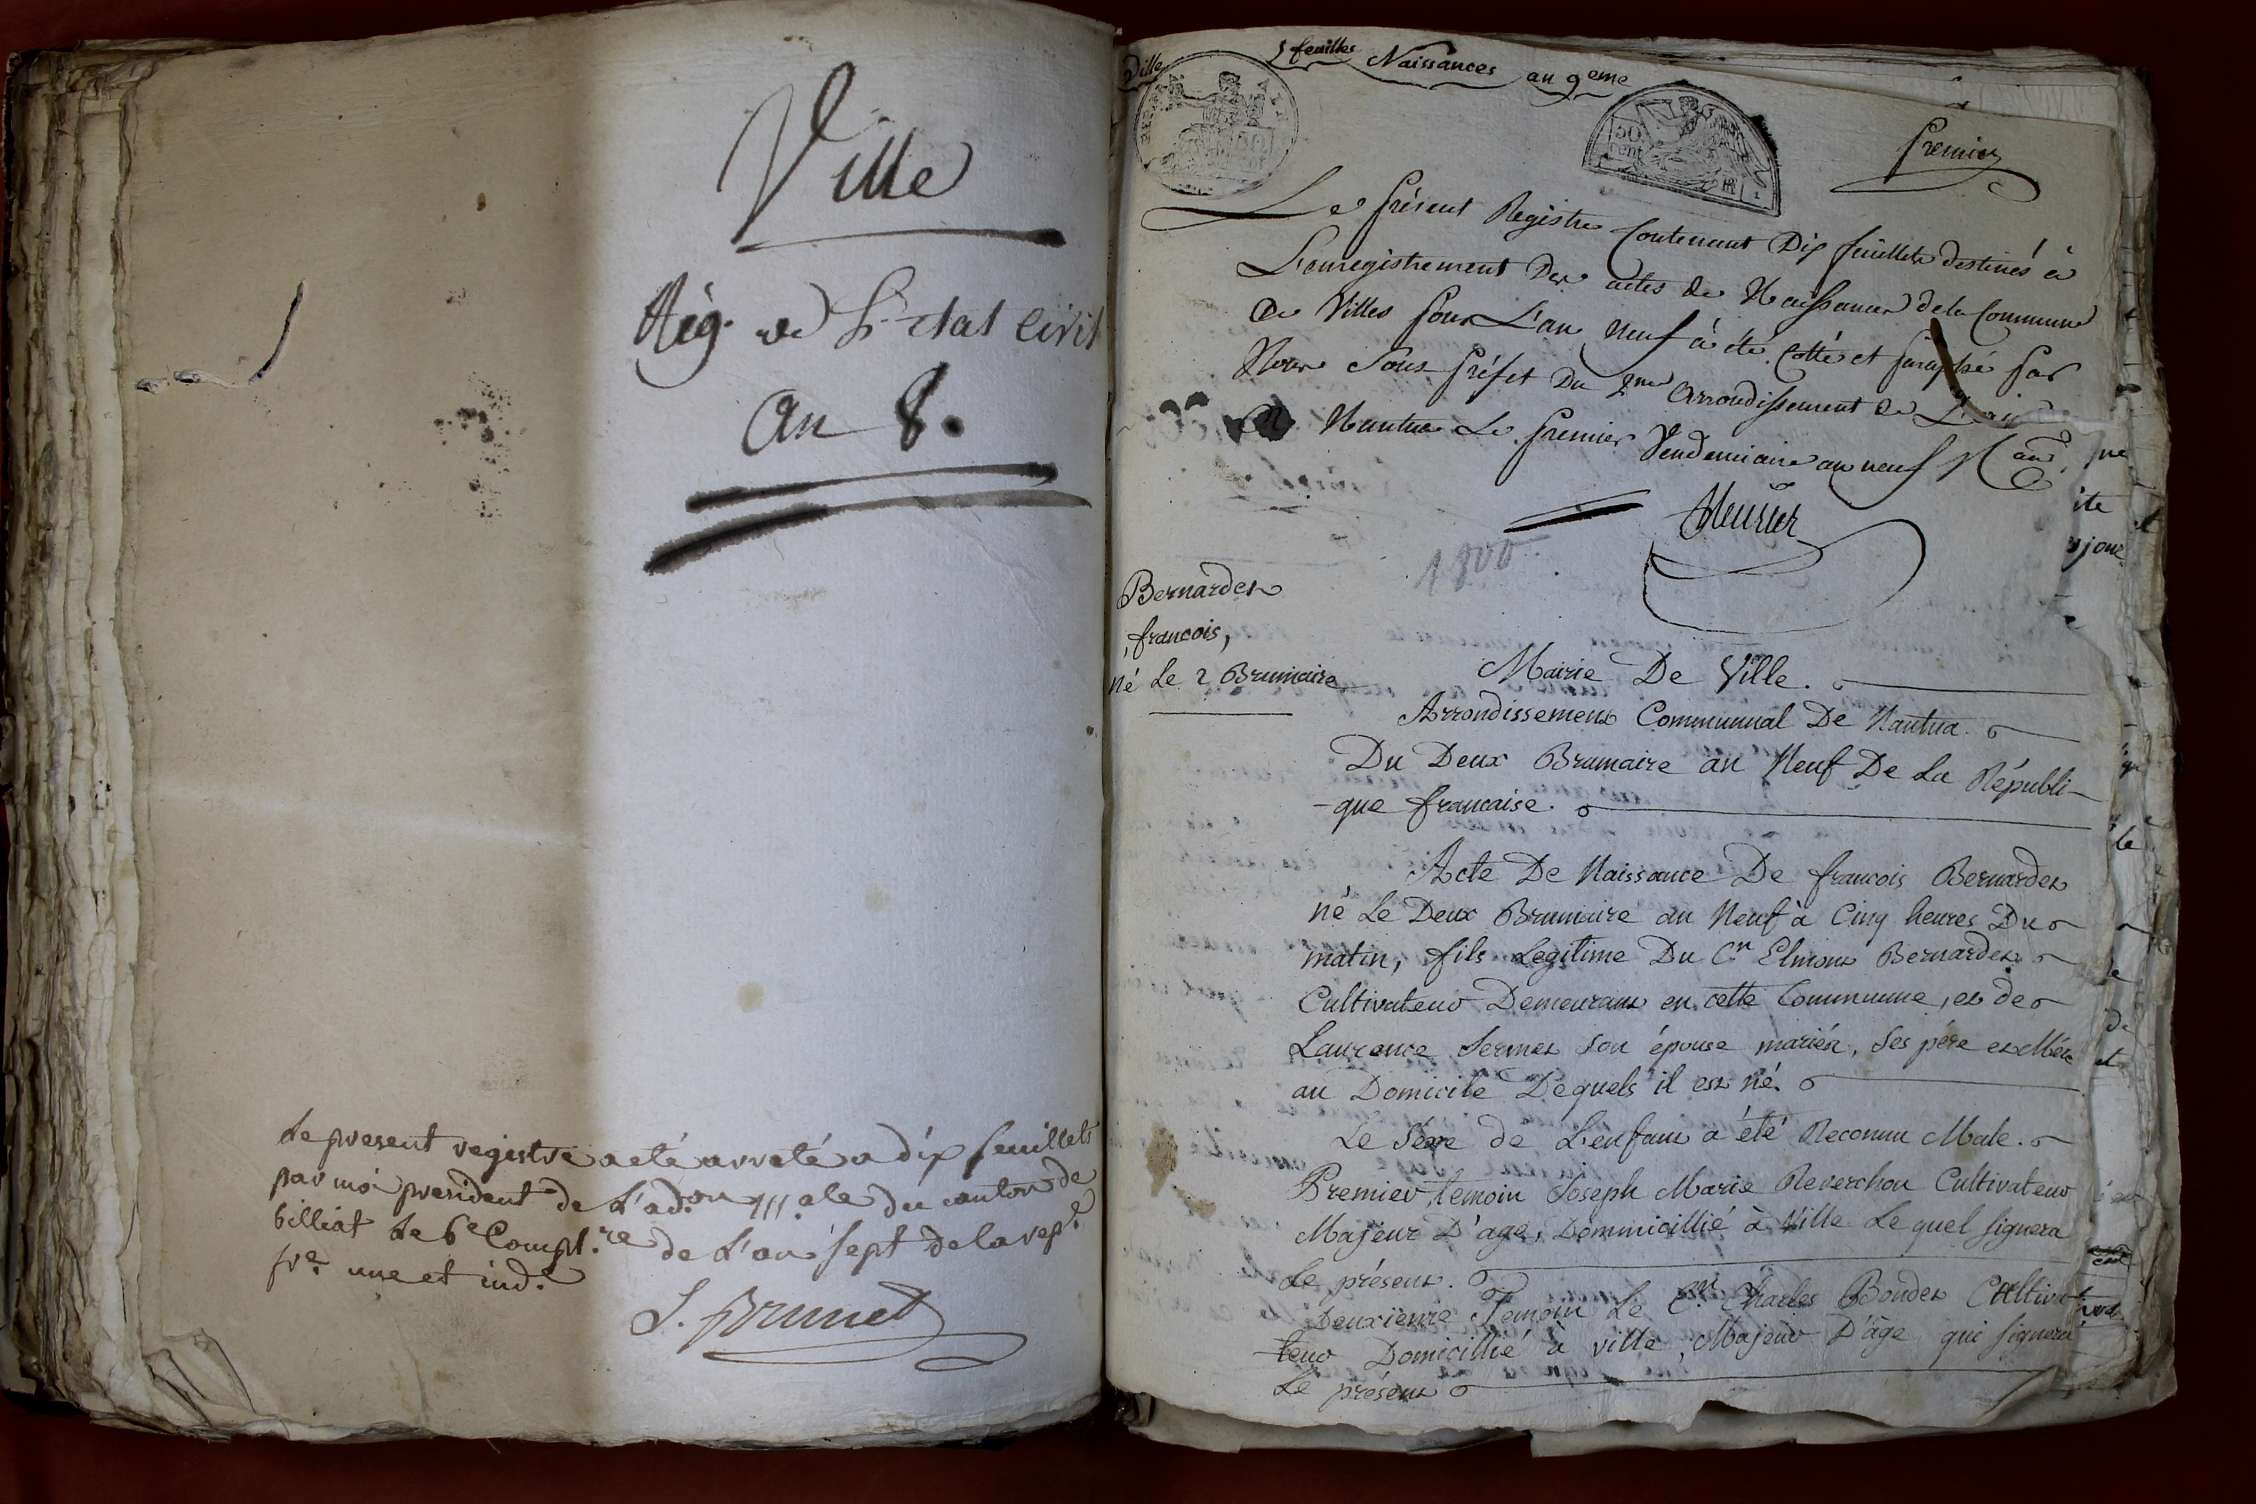 Ville
Rég. de l'état civil
an 8.
Le present registre a eté arreté a dix feuillets
par moi president de L'ad.on m.ale du canton de
billiat le 6e Compl.re de L'an sept de la rep.e
fr.e une et ind.e
J. Brunet
Ville
5 feuilles Naissances an 9eme
50
cent
premier
Le présent Registre Contenant Dix feuillets destinés à
L'enregistrement Des actes de Naissances de la Commune
De Villes pour L'an neuf à été Cotté et paraphé par
Nous Sous-préfet Du 2me Arrondissement de L'ain
A Nantua Le premier Vendemiaire an neuf
1800
Bernardet
françois,
né Le 2 Brumaire
Mairie De Ville.
Arrondissement Communnal De Nantua.
Du Deux Brumaire an Neuf De La Républi-
-que francaise.
Acte De Naissance De francois Bernardet
né Le Deux Brumaire an Neuf à Cinq heures Du
matin, fils Legitime Du C.n Elmont Bernardet
Cultivateur Demeurant en cette Commune, et de
Laurence Sermet son épouse mariés, ses pére et Mére
au Domicile Dequels il est né.
Le séxe de L'enfant a été Reconnu Male.
Premier, temoin Joseph Marie Reverchon Cultivateur
Majeur D'age, Dommicillié à Ville Le quel signera
Le présent.
Deuxieme Temoin Le C.n Charles Bondet Cultiva-
-teur Domicillié à ville, Majeur D'âge, qui signera
Le présent